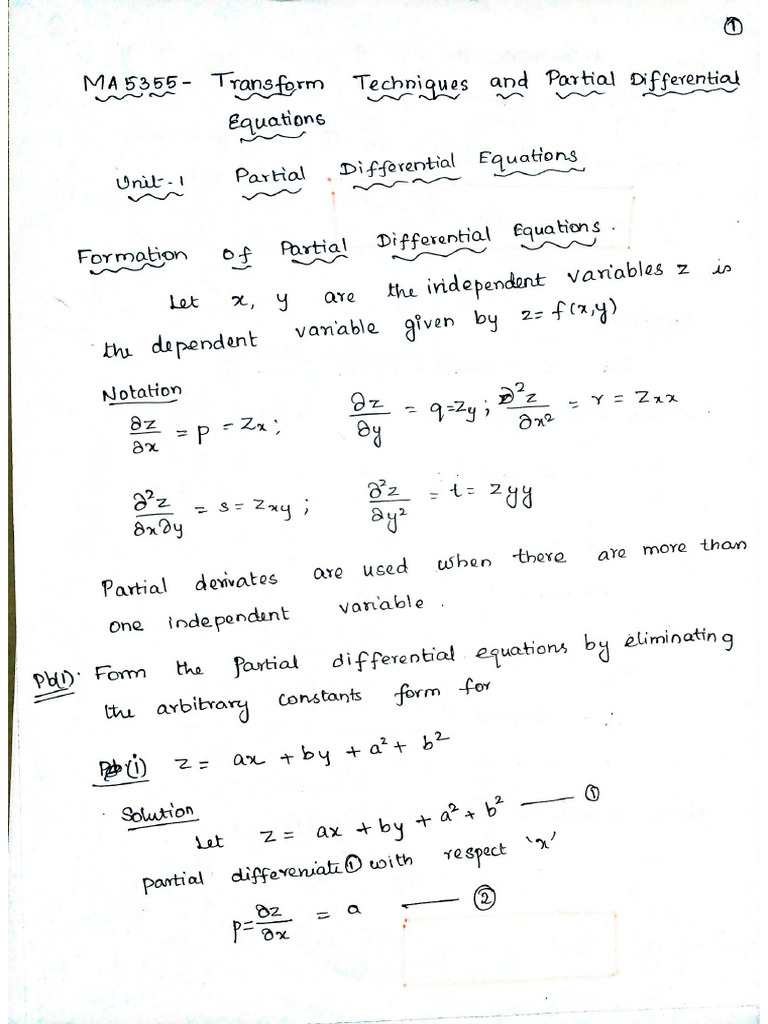 ①
MA5355- Transform Techniques and Partial Differential
Equations
Unit-1 Partial Differential Equations
Formation of Partial Differential Equations.
Let x, y are the independent variables z is
the dependent variable given by z= f(x,y)
Notation
∂z/∂x = p = Zx; ∂z/∂y = q=Zy; ∂²z/∂x² = r = Zxx
∂²z/∂x∂y = s = Zxy; ∂²z/∂y² = t = Zyy
Partial derivates are used when there are more than
one independent variable.
Pb(1). Form the Partial differential equations by eliminating
the arbitrary constants form for
Pb(i) z = ax + by + a² + b²
Solution
Let z = ax + by + a² + b² —— ①
partial differeniate ① with respect 'x'
p = ∂z/∂x = a —— ②